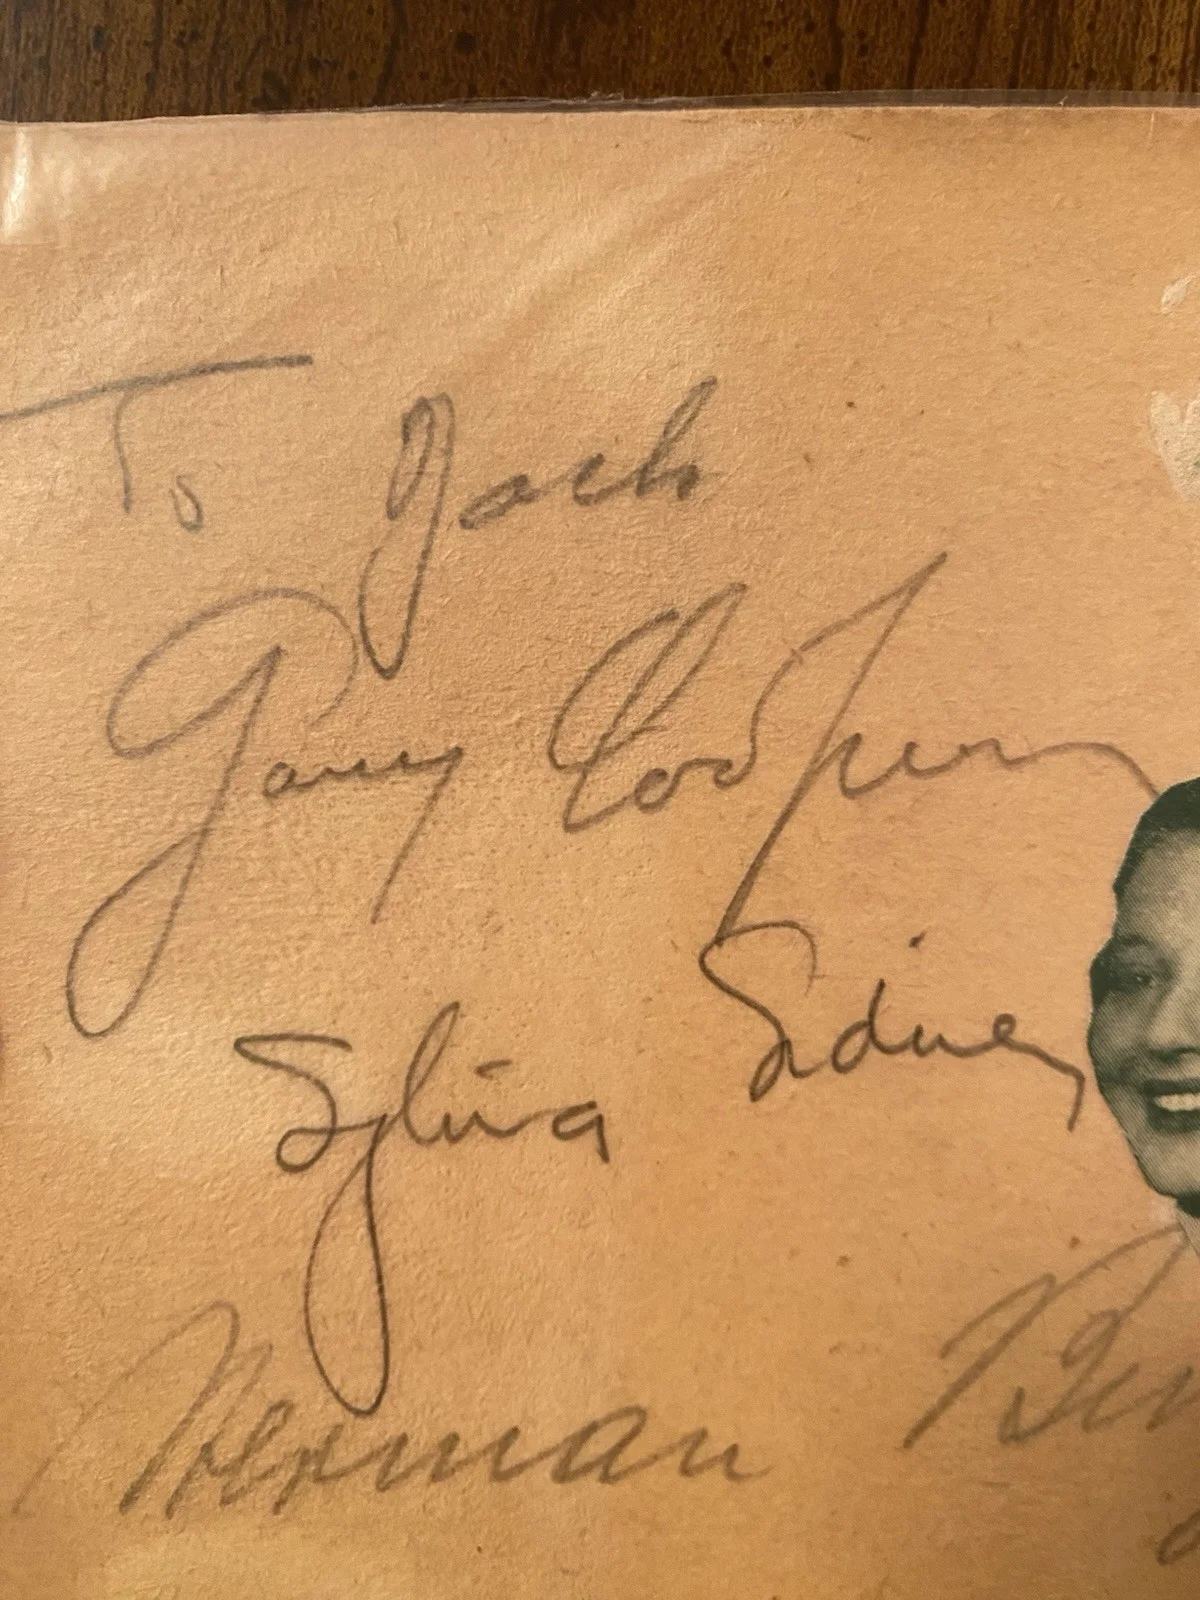 To Jack
Gary Cooper
Sylvia Sidney
Herman